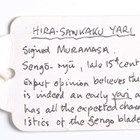 HIRA-SANKAKU YARI
Signed MURAMASA.
Sengō-ryū, late 15th cent
Expert opinion believes th
is indeed an early yari a
has all the expected chara
istics of the Sengo blade